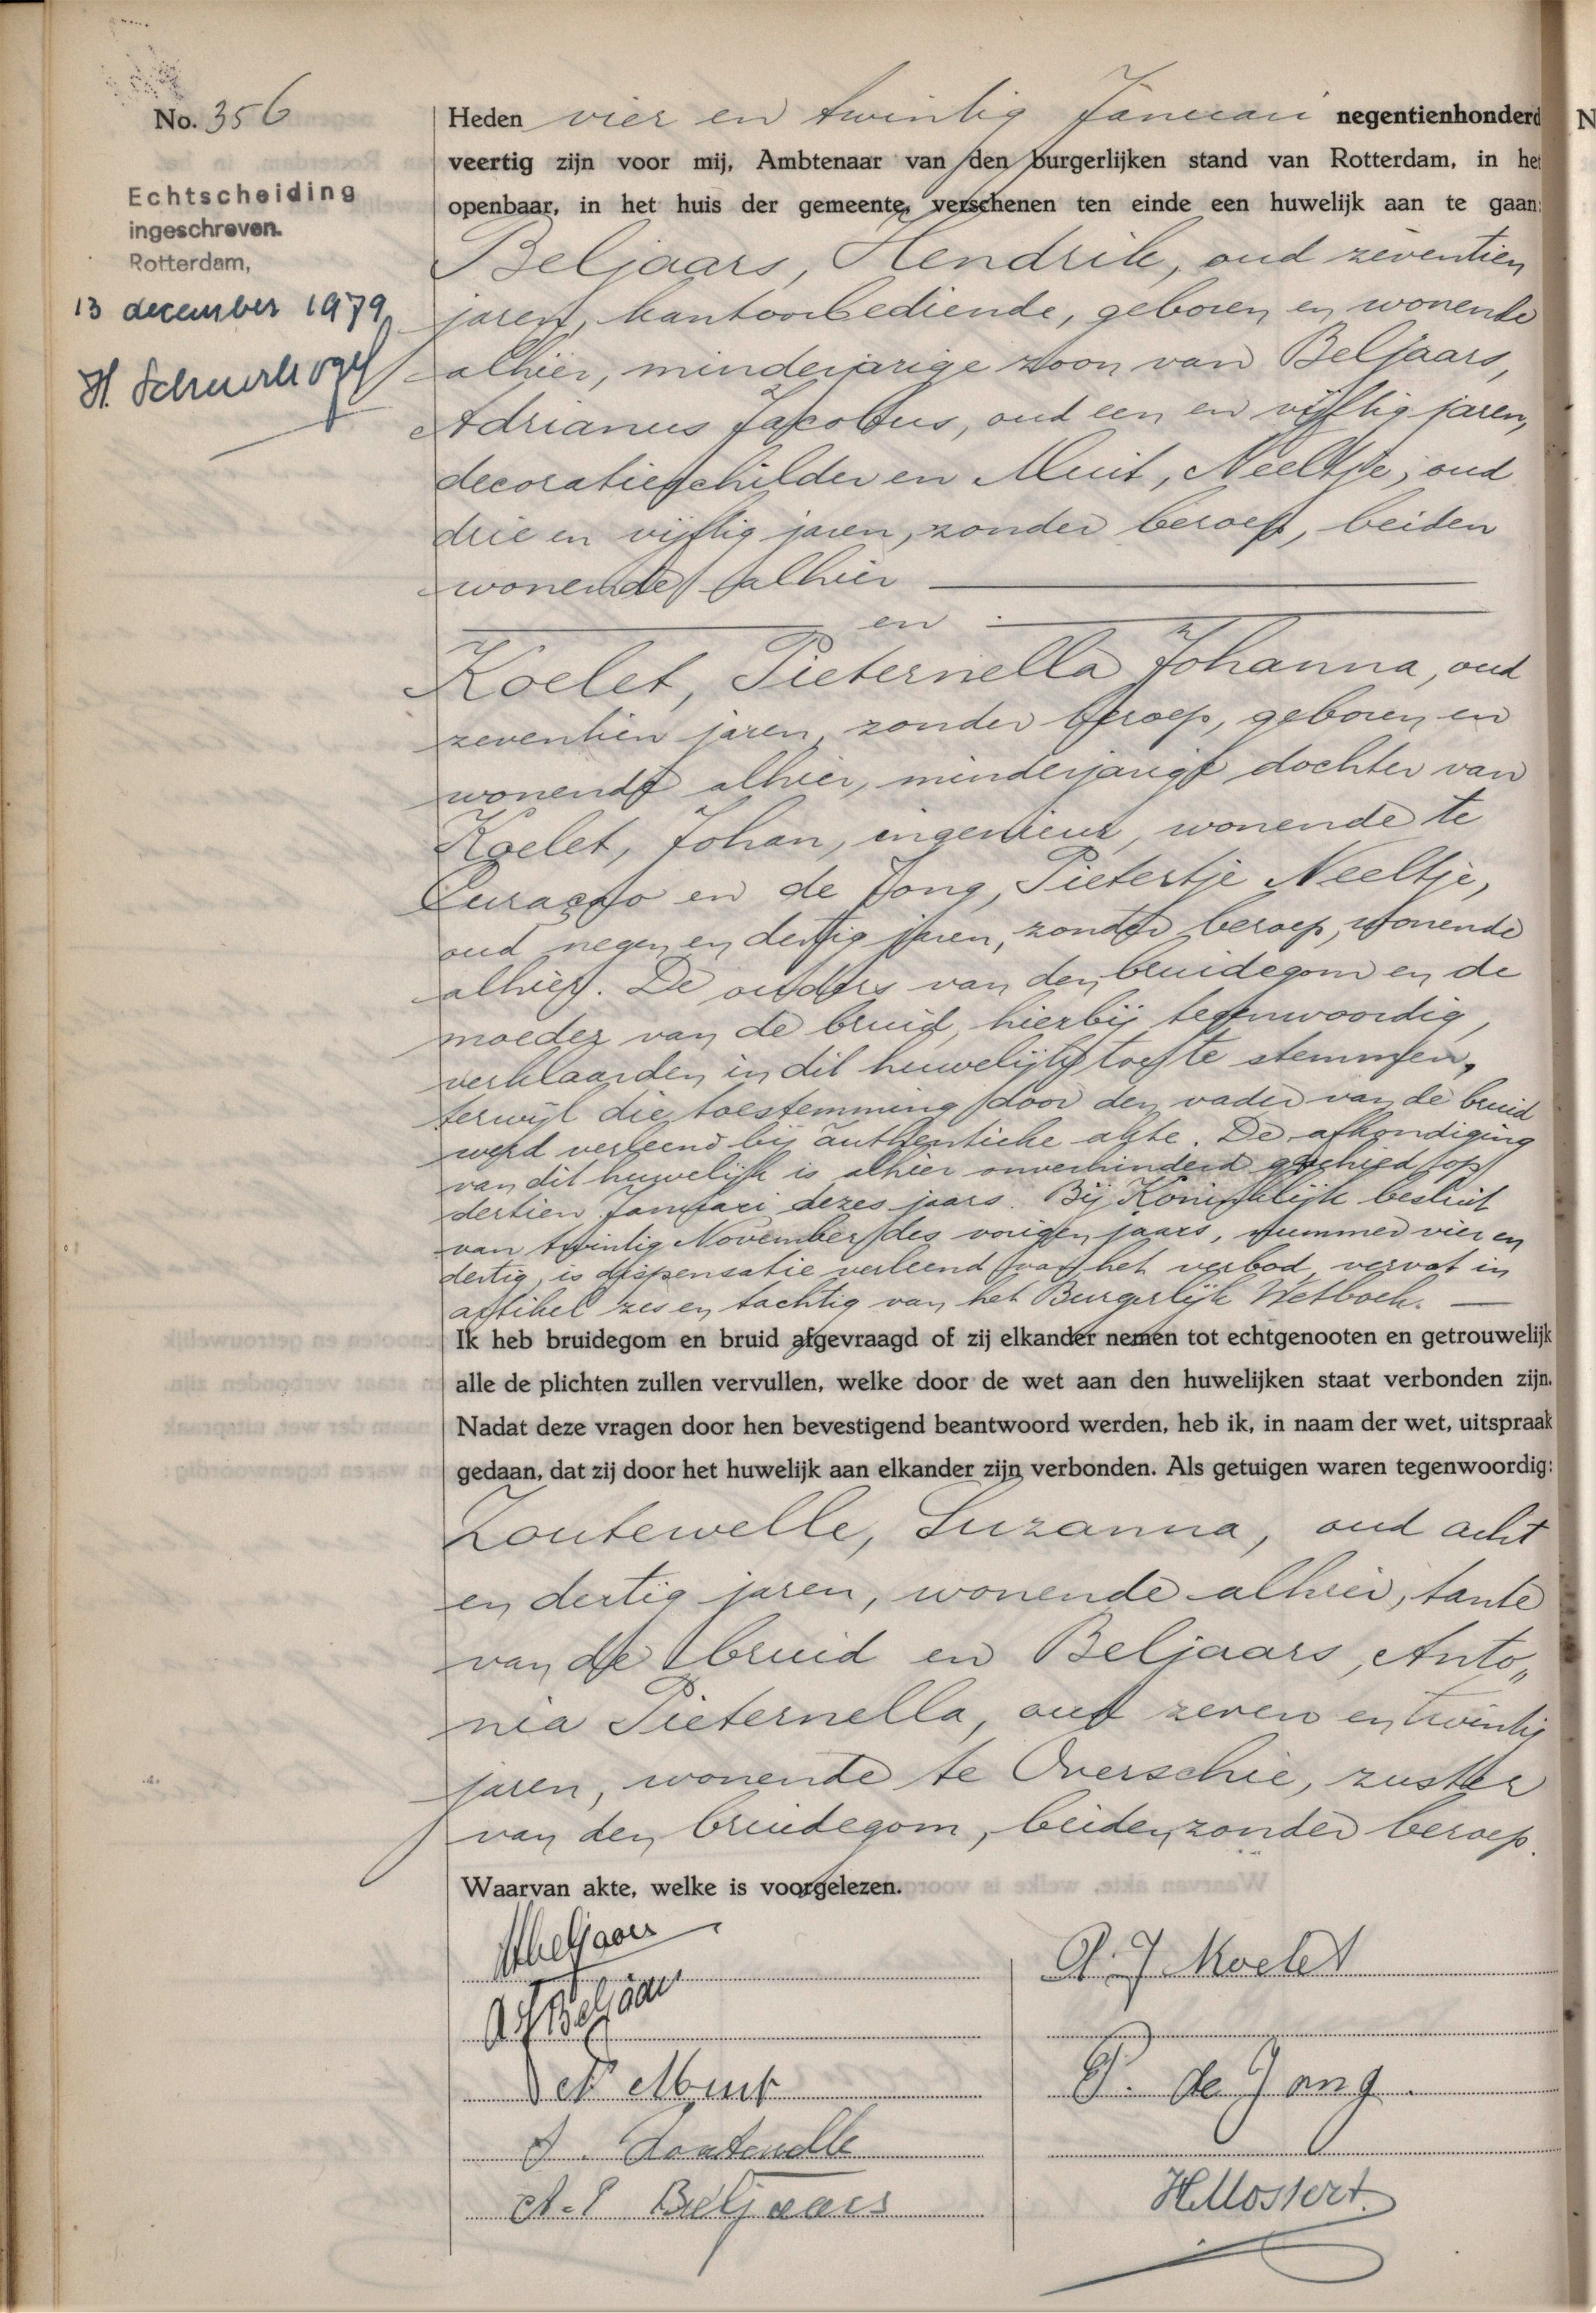 No. 356
Echtscheiding
ingeschreven.
Rotterdam,
13 december 1979
Heden vier en twintig Januari negentienhonderd
veertig zijn voor mij, Ambtenaar van den burgerlijken stand van Rotterdam, in het
openbaar, in het huis der gemeente, verschenen ten einde een huwelijk aan te gaan:
Beljaars, Hendrik, oud zeventien
jaren, kantoorbediende, geboren en wonende
alhier, minderjarige zoon van Beljaars,
Adrianus Jacobus, oud een en vijftig jaren,
decoratieschilder en Muit, Neeltje, oud
drie en vijftig jaren, zonder beroep, beiden
wonende alhier
en
Koelet, Pieternella Johanna, oud
zeventien jaren, zonder beroep, geboren en
wonende alhier, minderjarige dochter van
Koelet, Johan, ingenieur, wonende te
Curaçao en de Jong, Pietertje Neeltje,
oud negen en dertig jaren, zonder beroep, wonende
alhier. De ouders van den bruidegom en de
moeder van de bruid, hierbij tegenwoordig,
verklaarden in dit huwelijk toe te stemmen,
terwijl die toestemming door den vader van de bruid
werd verleend bij authentieke akte. De afkondiging
van dit huwelijk is alhier onverhinderd geschied op
dertien Januari dezes jaars. Bij Koninklijk besluit
van twintig November des vorigen jaars, nummer vier en
dertig, is dispensatie verleend van het verbod, vervat in
artikel zes en tachtig van het Burgerlijk Wetboek.
Ik heb bruidegom en bruid afgevraagd of zij elkander nemen tot echtgenooten en getrouwelijk
alle de plichten zullen vervullen, welke door de wet aan den huwelijken staat verbonden zijn.
Nadat deze vragen door hen bevestigend beantwoord werden, heb ik, in naam der wet, uitspraak
gedaan, dat zij door het huwelijk aan elkander zijn verbonden. Als getuigen waren tegenwoordig:
Zoutewelle, Suzanna, oud acht
en dertig jaren, wonende alhier, tante
van de bruid en Beljaars, Anto„
nia Pieternella, oud zeven en twintig
jaren, wonende te Overschie, zuster
van den bruidegom, beiden zonder beroep.
Waarvan akte, welke is voorgelezen.
HBeljaars
P. J Koelet
A J Beljaars
N Muit
P. de Jong.
S. Zoutewelle
A. P Beljaars
H Mostert